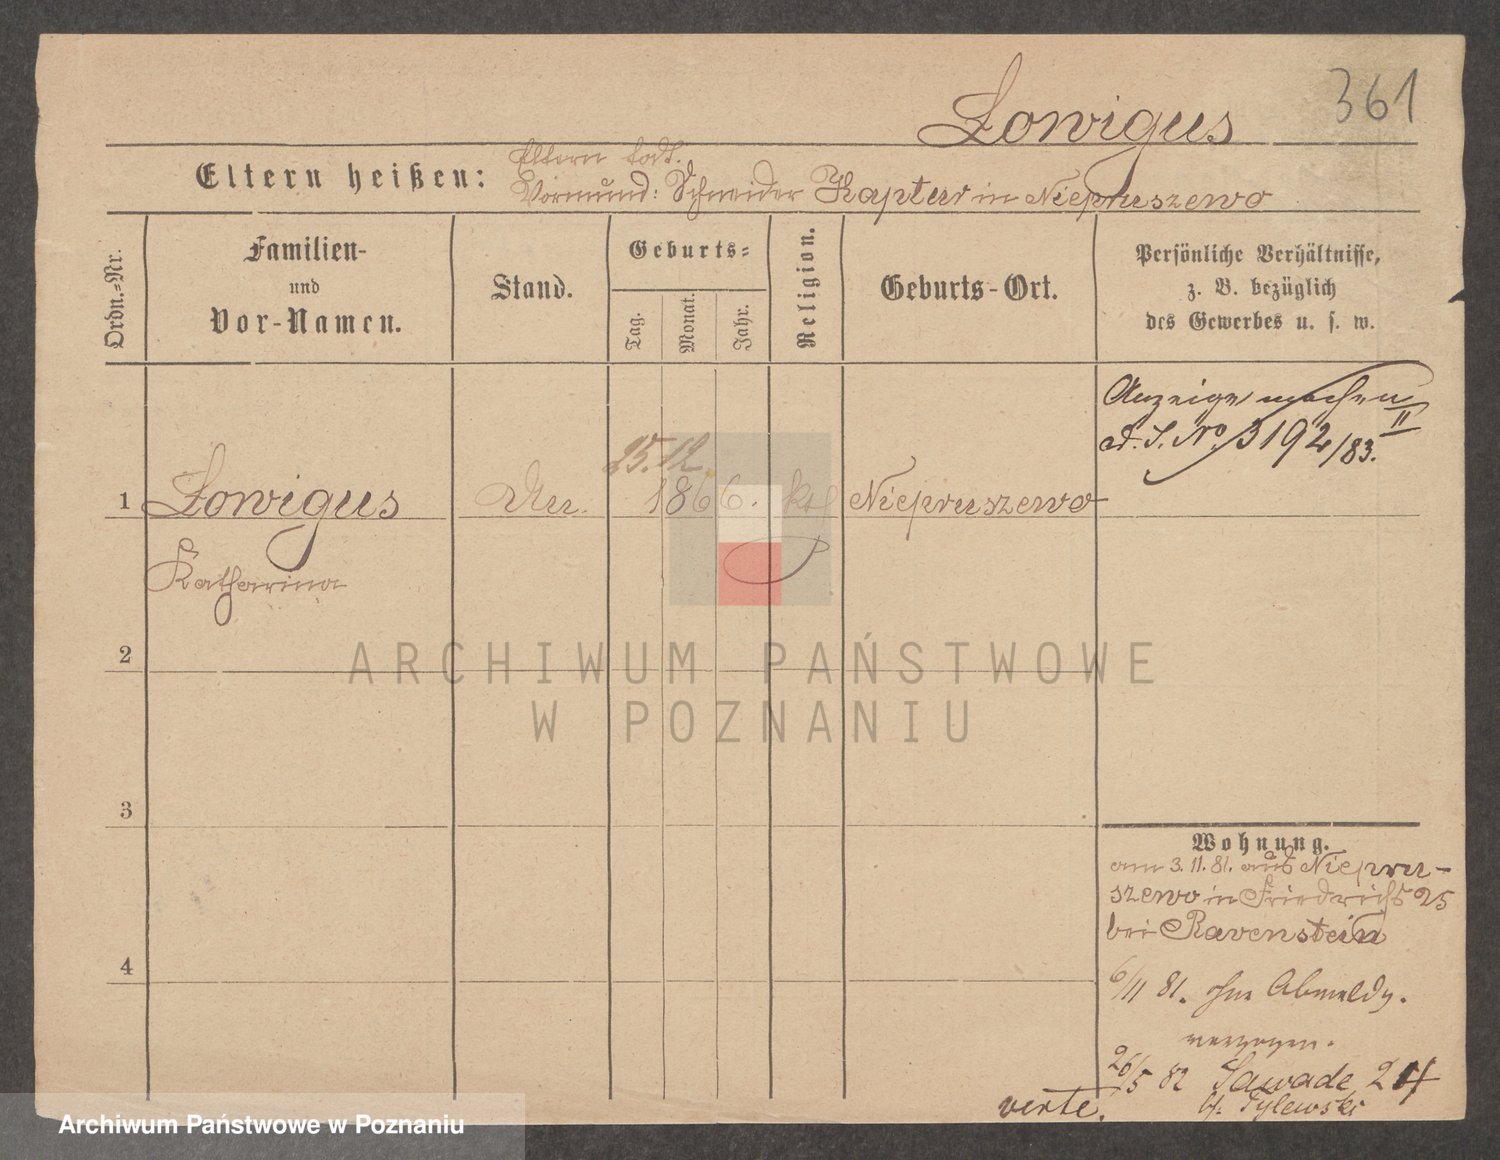 361
Lowigus
Eltern heißen:
Eltern todt.
Vormund: Schneider Kapter in Niepruszewo
Ordn.-Nr.
Familien-
und
Vor-Namen.
Stand.
Geburts-
Tag.
Monat.
Jahr.
Religion.
Geburts-Ort.
Persönliche Verhältnisse,
z. B. bezüglich
des Gewerbes u. s. w.
Anzeige machen
II
d. J. No. 3192/83.
25. 12.
1 Lowigus
1866. kth Niepruszewo
Katharina
2
3
4
ARCHIWUM PAŃSTWOWE
W POZNANIU
Wohnung.
am 3.11.81. aus Niepru-
szewo in Friedrichst 25
bei Ravenstein
6/11 81. ohne Abmeldg.
verzogen.
26/5 82 Sawade 24
bf. Tylewski
verte.
Archiwum Państwowe w Poznaniu